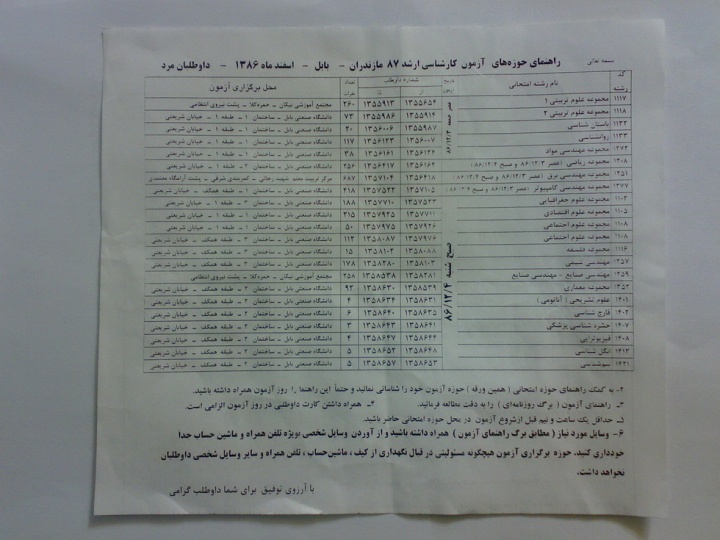 بسمه تعالی
راهنمای حوزه‌های آزمون کارشناسی ارشد ۸۷ مازندران - بابل - اسفند ماه ۱۳۸۶ - داوطلبان مرد
کد رشته نام رشته امتحانی تاریخ شماره داوطلب از تا تعداد نفرات محل برگزاری آزمون
۱۱۱۷ مجموعه علوم تربیتی ۱ ۱۳۵۵۶۵۴ ۱۳۵۵۹۱۳ ۲۶۰ مجتمع آموزشی نیکان - حمزه‌کلا - پشت نیروی انتظامی
۱۱۱۸ مجموعه علوم تربیتی ۲ ۱۳۵۵۹۱۴ ۱۳۵۵۹۸۶ ۷۳ دانشگاه صنعتی بابل - ساختمان ۱ - طبقه ۱ - خیابان شریعتی
باستان شناسی ۱۳۵۵۹۸۷ ۱۳۵۶۰۰۶ ۲۰ دانشگاه صنعتی بابل - ساختمان ۱ - طبقه ۱ - خیابان شریعتی
۱۱۳۳ روانشناسی ۱۳۵۶۰۰۷ ۱۳۵۶۱۲۳ ۱۱۷ دانشگاه صنعتی بابل - ساختمان ۱ - طبقه ۱ - خیابان شریعتی
۱۲۷۲ مجموعه مهندسی مواد ۱۳۵۶۱۲۴ ۱۳۵۶۱۶۱ ۳۸ دانشگاه صنعتی بابل - ساختمان ۱ - طبقه ۱ - خیابان شریعتی
۱۲۰۸ مجموعه ریاضی (عصر ۸۶/۱۲/۳ و صبح ۸۶/۱۲/۴) ۱۳۵۶۱۶۲ ۱۳۵۶۴۱۷ ۲۵۶ دانشگاه صنعتی بابل - ساختمان
۱۲۵۱ مجموعه مهندسی برق (عصر ۸۶/۱۲/۳ و صبح ۸۶/۱۲/۴) ۱۳۵۶۴۱۸ ۱۳۵۷۱۰۴ ۶۸۷ مرکز تربیت معلم شهید رجائی - کمربندی شرقی - پشت آرامگاه معتمدی
۱۲۷۷ مجموعه مهندسی کامپیوتر (عصر ۸۶/۱۲/۳ و صبح ۸۶/۱۲/۴) ۱۳۵۷۱۰۵ ۱۳۵۷۵۲۲ ۴۱۸ دانشگاه صنعتی بابل - ساختمان ۱ - طبقه همکف - خیابان شریعتی
مجموعه علوم جغرافیایی ۱۳۵۷۵۲۳ ۱۳۵۷۷۱۰ ۱۸۸ دانشگاه صنعتی بابل - ساختمان ۳ - طبقه ۱ - خیابان شریعتی
۱۱۰۵ مجموعه علوم اقتصادی ۱۳۵۷۷۱۱ ۱۳۵۷۹۲۵ ۲۱۵ دانشگاه صنعتی بابل - ساختمان
۱۱۰۸ مجموعه علوم اجتماعی ۱۳۵۷۹۲۶ ۱۳۵۷۹۷۵ ۵۰ دانشگاه صنعتی بابل - ساختمان
۱۱۰۸ مجموعه علوم اجتماعی ۱۳۵۷۹۷۶ ۱۳۵۸۰۸۷ ۱۱۲ دانشگاه صنعتی بابل - ساختمان ۳ - طبقه همکف - خیابان شریعتی
۱۱۱۶ مجموعه فلسفه ۱۳۵۸۰۸۸ ۱۳۵۸۱۰۲ ۱۵ دانشگاه صنعتی بابل - ساختمان ۳ - طبقه همکف - خیابان شریعتی
۱۲۵۷ مهندسی شیمی ۱۳۵۸۱۰۳ ۱۳۵۸۲۸۰ ۱۷۸ دانشگاه صنعتی بابل - ساختمان
۱۲۵۹ مهندسی صنایع - مهندسی صنایع ۱۳۵۸۲۸۱ ۱۳۵۸۵۳۸ ۲۵۸ مجتمع آموزشی نیکان - حمزه‌کلا - پشت نیروی انتظامی
۱۳۵۲ مجموعه معماری ۱۳۵۸۵۳۹ ۱۳۵۸۶۳۰ ۹۲ دانشگاه صنعتی بابل - ساختمان ۲ - طبقه همکف - خیابان شریعتی
۱۴۰۱ علوم تشریحی (آناتومی) ۱۳۵۸۶۳۱ ۱۳۵۸۶۳۴ ۴ دانشگاه صنعتی بابل - ساختمان ۲ - طبقه همکف - خیابان شریعتی
۱۴۰۲ قارچ شناسی ۱۳۵۸۶۳۵ ۱۳۵۸۶۴۰ ۶ دانشگاه صنعتی بابل - ساختمان ۲ - طبقه همکف - خیابان شریعتی
۱۴۰۷ حشره شناسی پزشکی ۱۳۵۸۶۴۱ ۱۳۵۸۶۴۳ ۳ دانشگاه صنعتی بابل - ساختمان ۲ - طبقه همکف - خیابان شریعتی
۱۴۰۸ فیزیوتراپی ۱۳۵۸۶۴۴ ۱۳۵۸۶۴۷ ۴ دانشگاه صنعتی بابل - ساختمان ۲ - طبقه همکف - خیابان شریعتی
۱۴۱۳ انگل شناسی ۱۳۵۸۶۴۸ ۱۳۵۸۶۵۲ ۵ دانشگاه صنعتی بابل - ساختمان ۲ - طبقه همکف - خیابان شریعتی
۱۴۲۱ سم‌شناسی ۱۳۵۸۶۵۳ ۱۳۵۸۶۵۷ ۵ دانشگاه صنعتی بابل - ساختمان ۲ - طبقه همکف - خیابان شریعتی
عصر جمعه ۸۶/۱۲/۳
صبح شنبه ۸۶/۱۲/۴
۲- به کمک راهنمای حوزه امتحانی (همین ورقه) حوزه آزمون خود را شناسائی نمائید و حتماً این راهنما را روز آزمون همراه داشته باشید.
۳- راهنمای آزمون (برگ روزنامه‌ای) را به دقت مطالعه فرمائید. ۴- همراه داشتن کارت داوطلبی در روز آزمون الزامی است.
۵- حداقل یک ساعت و نیم قبل از شروع آزمون در محل حوزه امتحانی حاضر باشید.
۶- وسایل مورد نیاز (مطابق برگ راهنمای آزمون) همراه داشته باشید و از آوردن وسایل شخصی بویژه تلفن همراه و ماشین حساب جدا
خودداری کنید. حوزه برگزاری آزمون هیچگونه مسئولیتی در قبال نگهداری از کیف ، ماشین‌حساب ، تلفن همراه و سایر وسایل شخصی داوطلبان
نخواهد داشت.
با آرزوی توفیق برای شما داوطلب گرامی